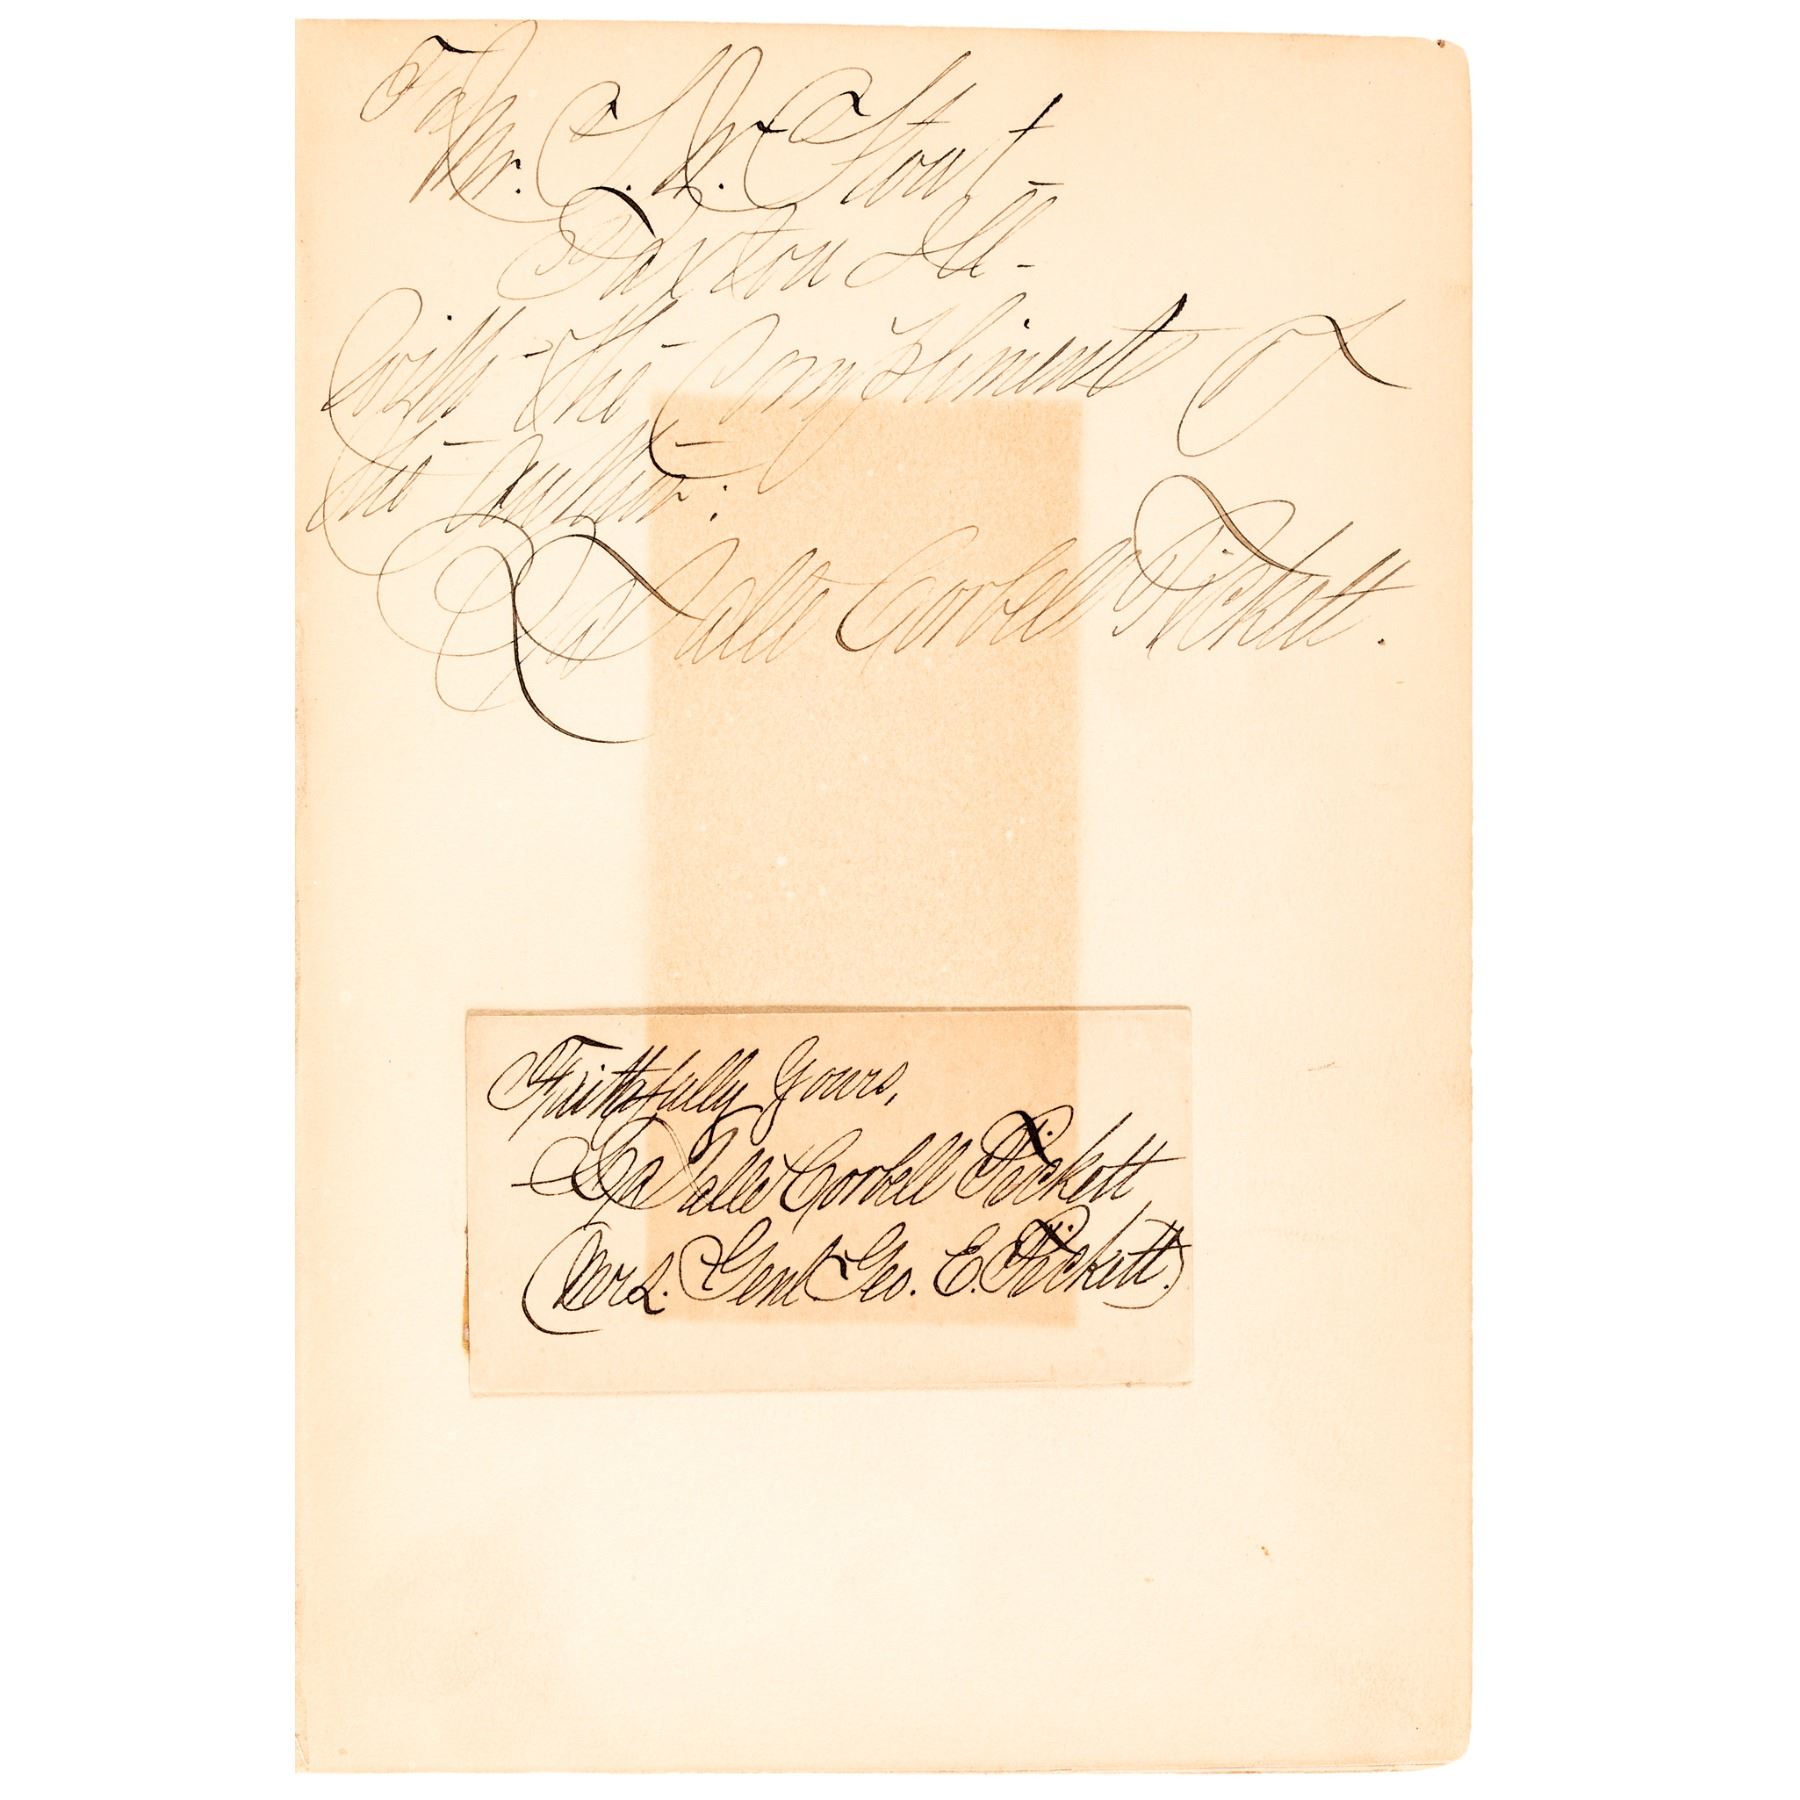 To
Mr. C. W. Stout -
Paxton Ill -
With the Compliments of
the author:
LaSalle Corbell Pickett.
Faithfully Yours,
LaSalle Corbell Pickett
(Mrs. Genl. Geo. E. Pickett.)